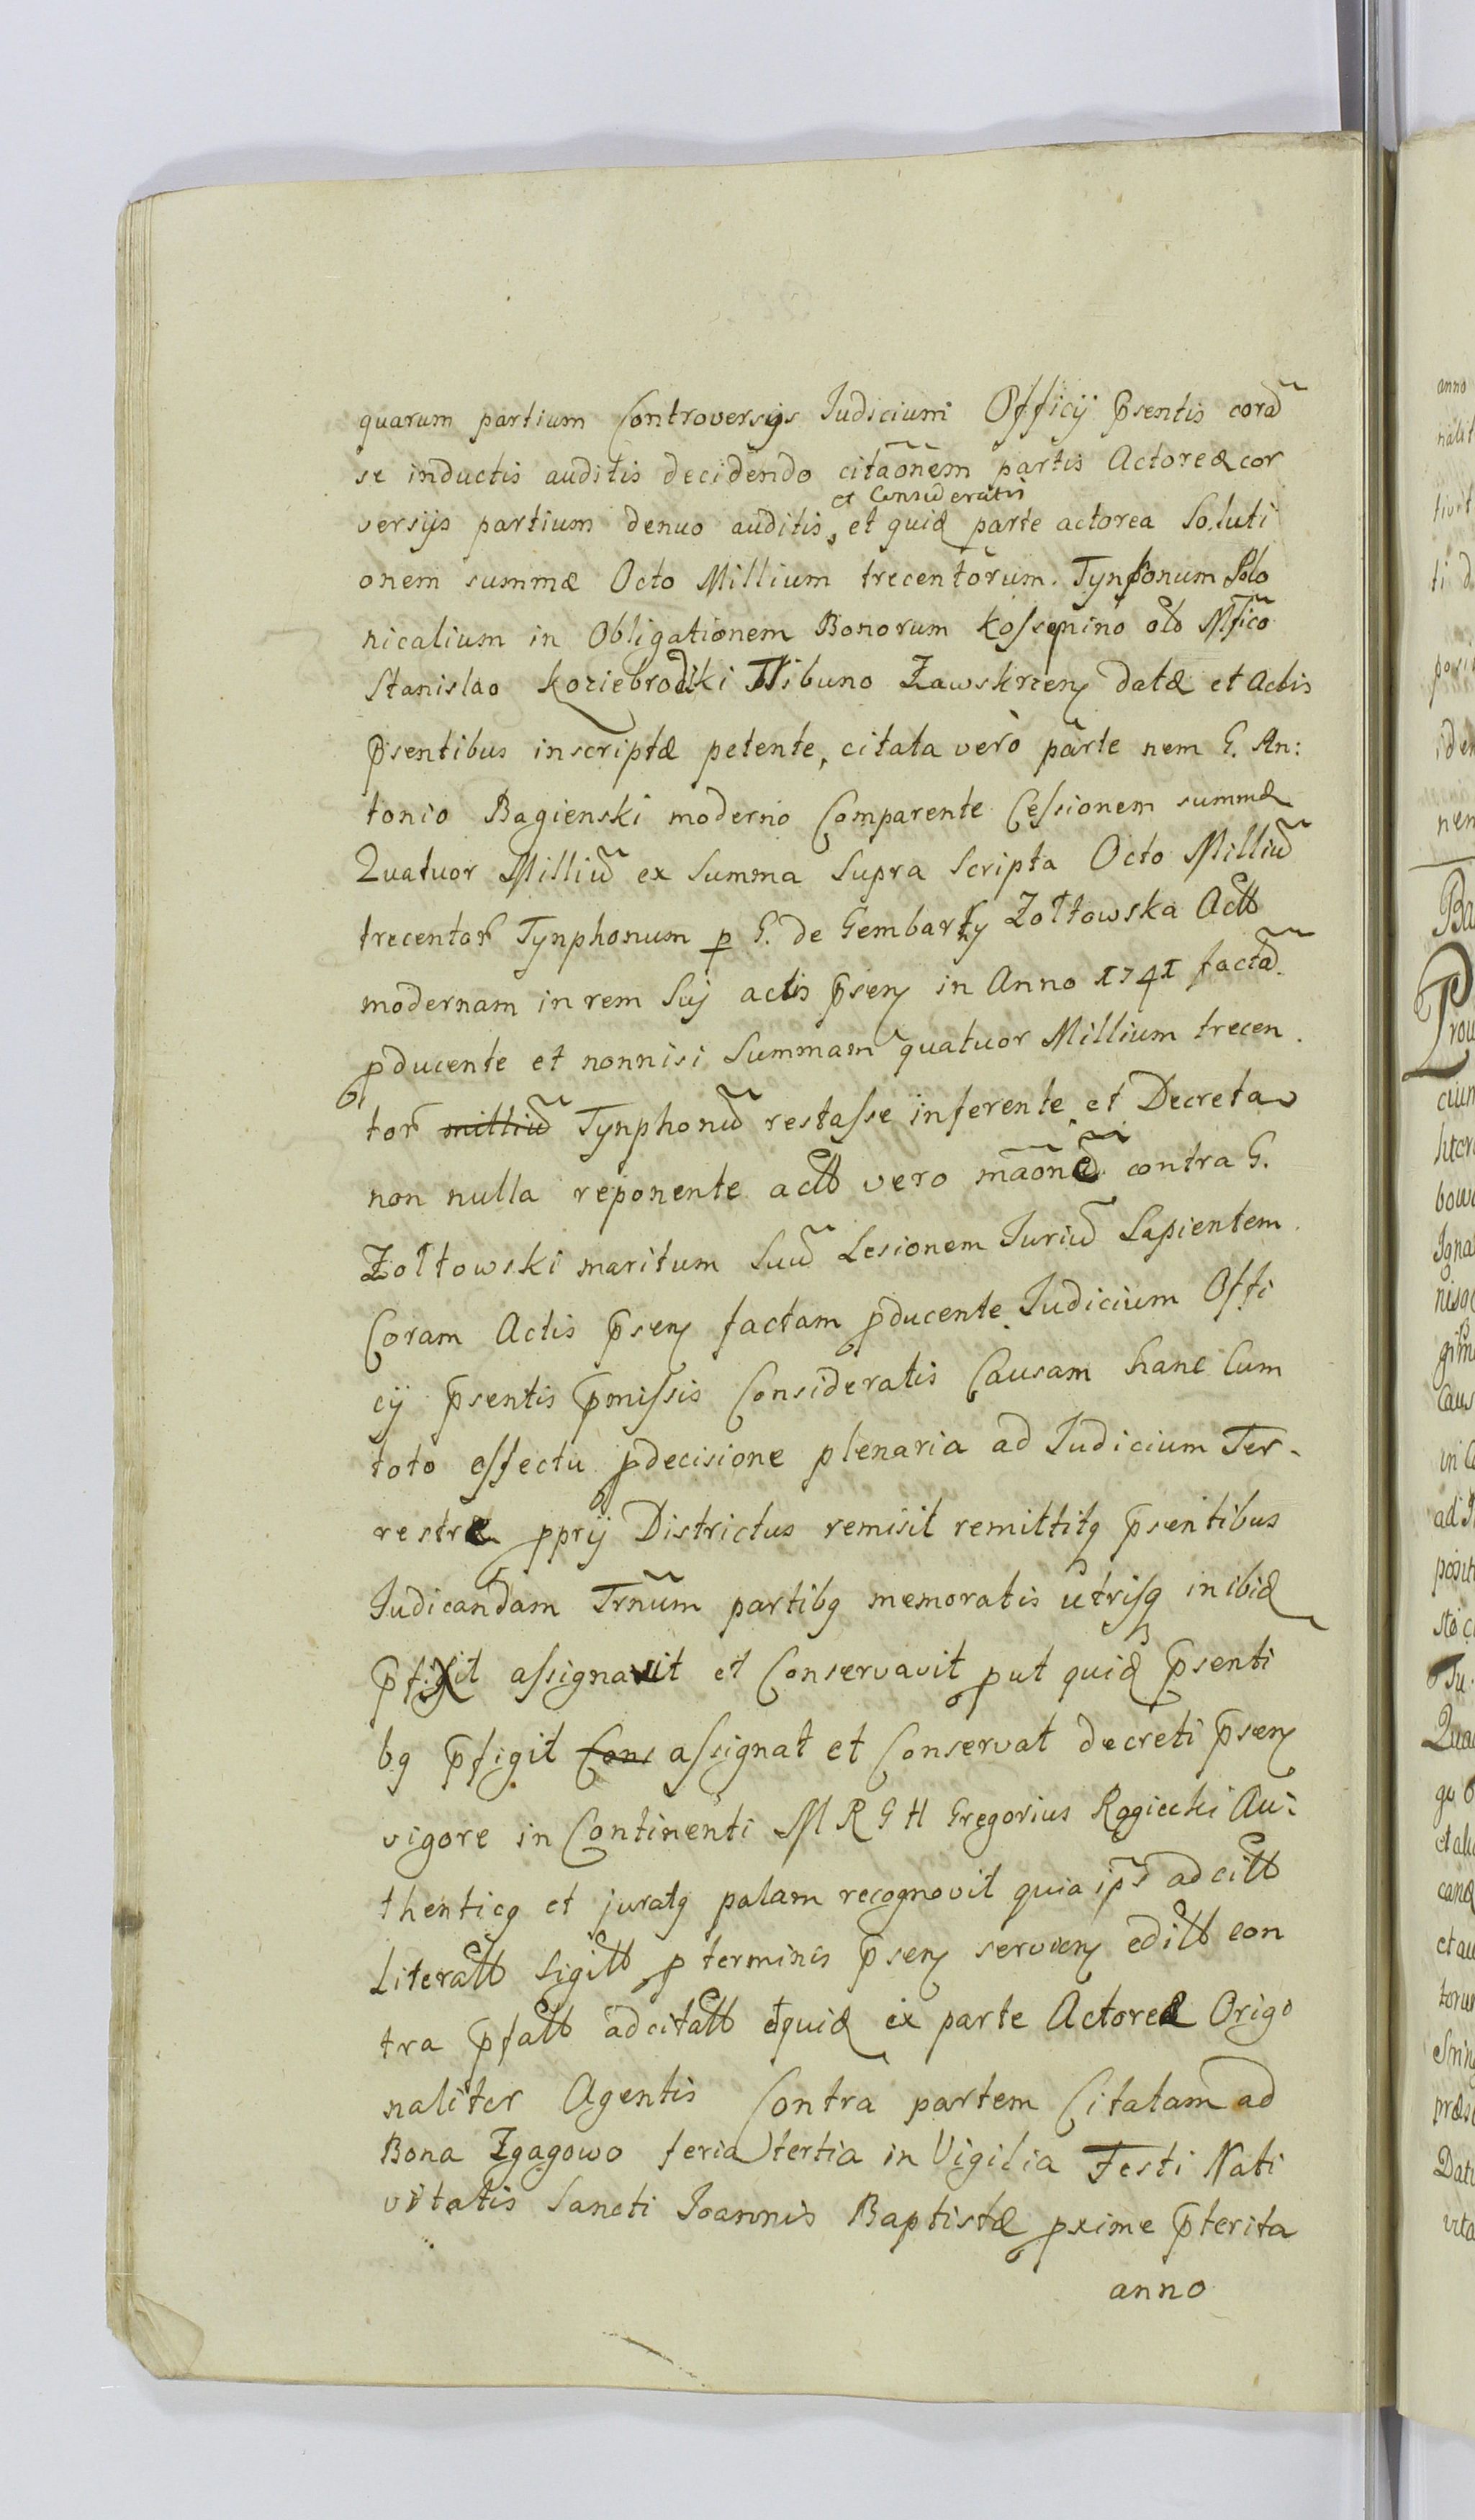 quarum partium Controversijs Iudicium Officij p̄sentis corã
se inductis auditis decidendo citãonem partis Actoreæ cor
et Consideratis
versijs partium denuo auditis, et quid parte actorea Soluti
onem summæ Octo Millium trecentorum Tynphonum Polo
nicalium in Obligationem Bonorum Kossemino olb Mfico
Stanislao Koziebrodzki Tribuno Zawskrzen datæ et Actis
p̄sentibus inscriptæ petente, citata verò parte nem G. An:
tonio Bagienski moderno Comparente Cessionem summæ
Quatuor Milliũ ex Summa Supra Scripta Octo Milliũ
trecentor Tynphonum p G. de Gembarty Zołtowska Actb
modernam in rem Suj actis p̄sen in Anno 1741 factã
pducente et nonnisi Summam quatuor Millium trecen
tor milliũ Tynphonũ restasse inferente et Decreta
non nulla reponente actb vero mãonẽ contra G.
Zołtowski maritum Suũ Lesionem Iuriũ Sapientem
Coram Actis p̄sen factam pducente Iudicium Offi
cij p̄sentis p̄missis Consideratis Causam hanc Cum
toto effectu pdecisione plenaria ad Iudicium Ter-
restre pprij Districtus remisit remittitq p̄sentibus
Iudicandam Trnũm partibq memoratis utrisq inibid
p̄fixit assignavit et Conservavit put quid p̄senti
bq p̄figit Cons assignat et Conservat decreti p̄sen
vigore in Continenti M R G H Gregorius Rogiecki Au:
thenticq et juratq palam recognovit quia ips adcitb
Literatb Sigilb p terminis p̄sen servien editb con
tra p̄fatb adcitatb etquid ex parte Actoreæ Origi
naliter Agentis Contra partem Citatam ad
Bona Zgagowo feria tertia in Vigilia Festi Nati
vitatis Sancti Ioannis Baptistæ pxime p̄terita
anno